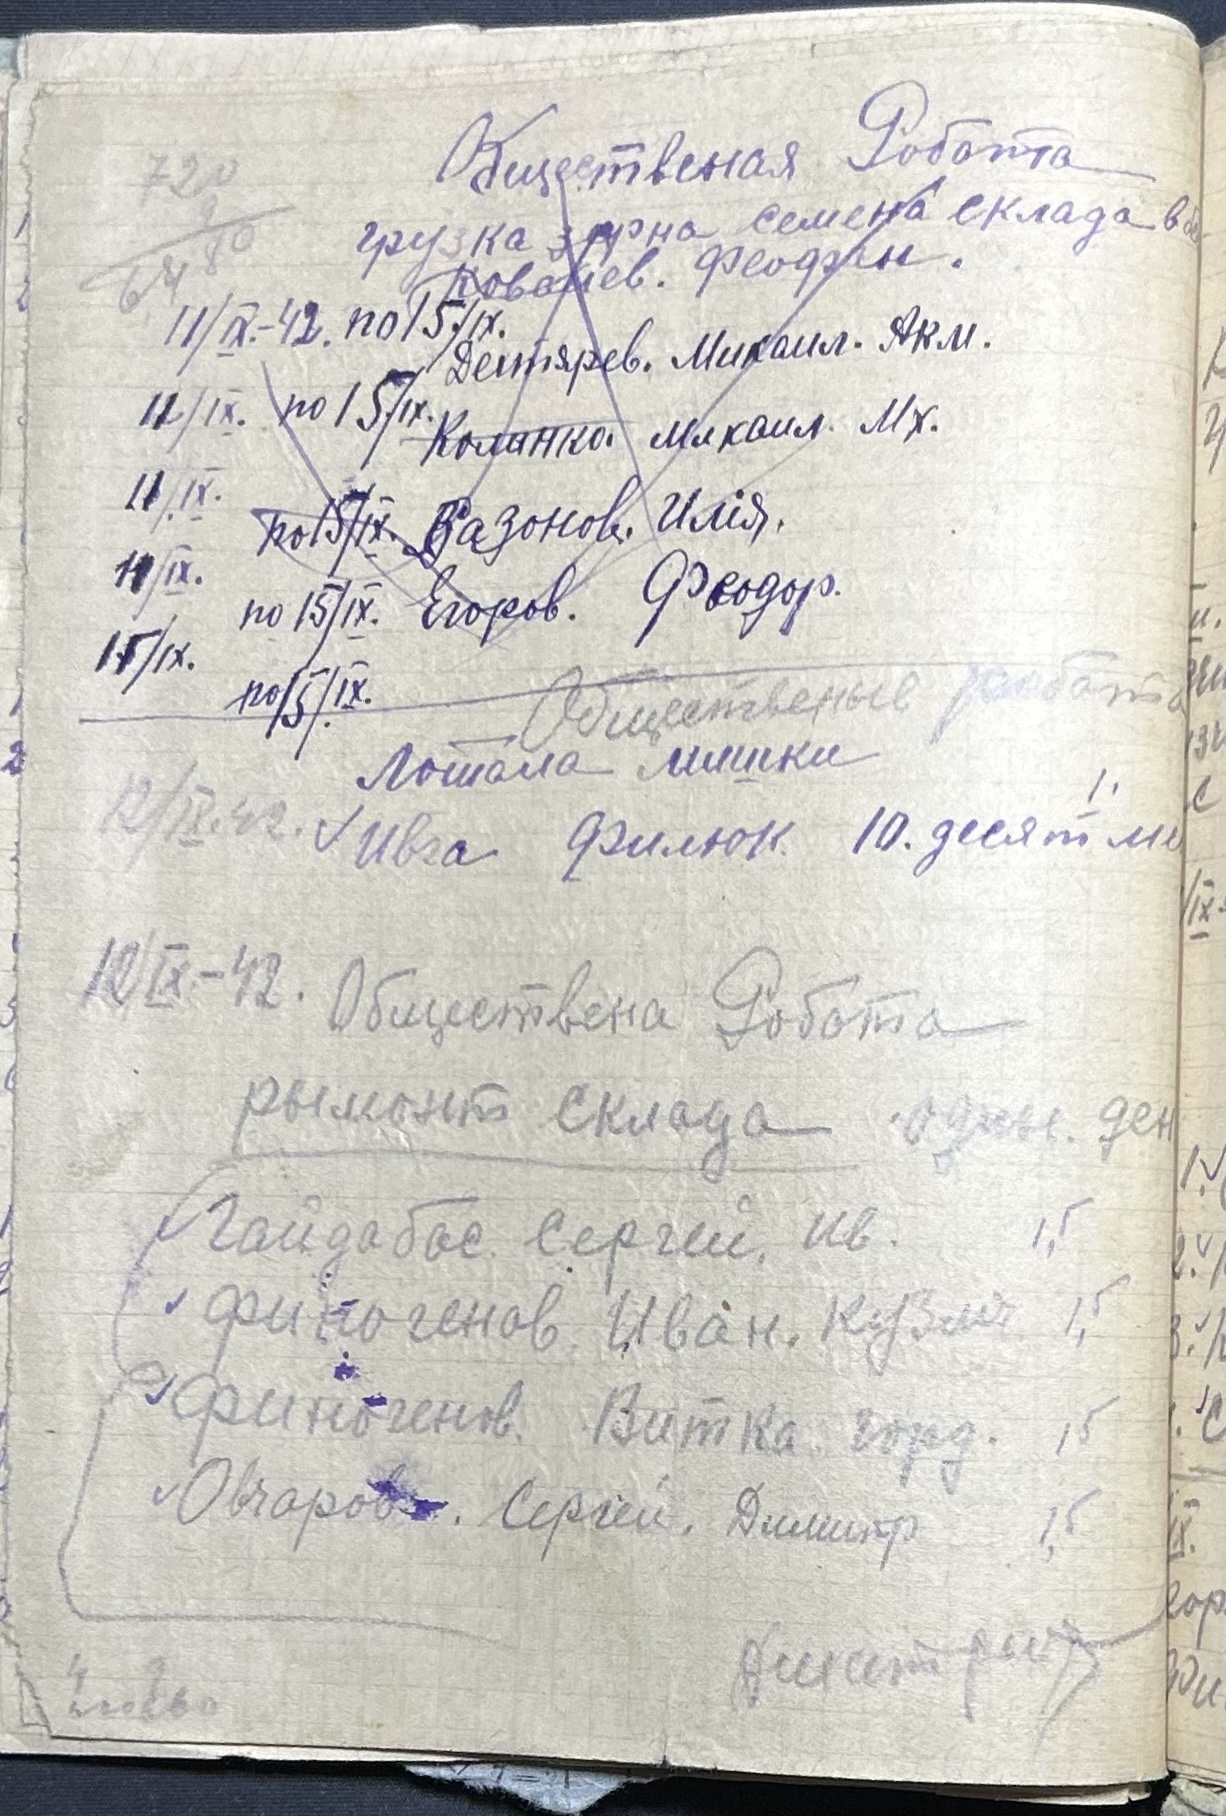 720
64 80
Общественая Робота
грузка зерна семена склада в
Ковалев. Феофан.
11/IX.-42. по 15/IX.
Дегтярев. Михаил. Аким.
11/IX. по 15/IX.
Колинко. Михаил. Мх.
11/IX.
по 15/IX. Сазонов. Илія.
11/IX.
по 15/IX. Егоров. Феодор.
15/IX.
по 15/IX.
Общественые работа
Лотала мишки
12/IX.42. Ивга Филюк 10. десят
12/IX-42. Обществена Робота
рымонт склада один. ден
Гайдабас. Сергей. Ив. 1,5
Финогенов. Иван. Кузмич 1,5
Финогенов. Витка. горд. 1,5
Овчаров. Сергей. Димитр 1,5